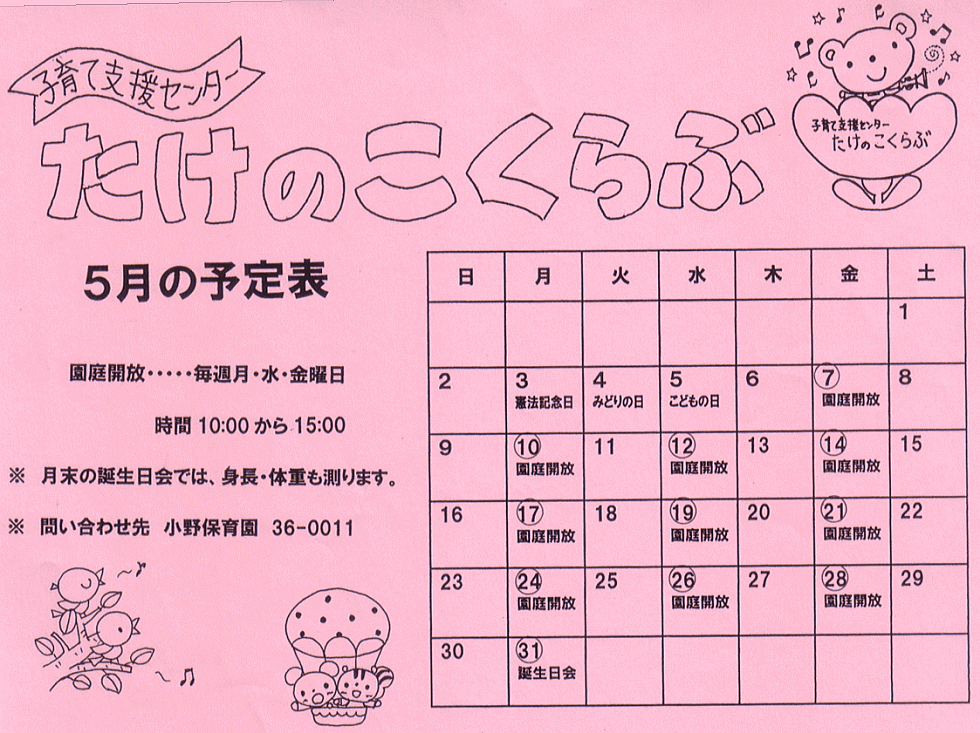 子育て支援センター
たけのこくらぶ
子育て支援センター
たけのこくらぶ
5月の予定表
園庭開放・・・・・毎週月・水・金曜日
時間 10:00 から 15:00
※ 月末の誕生日会では、身長・体重も測ります。
※ 問い合わせ先 小野保育園 36-0011
日 月 火 水 木 金 土
1
2 3 4 5 6 ⑦ 8
憲法記念日 みどりの日 こどもの日 園庭開放
9 ⑩ 11 ⑫ 13 ⑭ 15
園庭開放 園庭開放 園庭開放
16 ⑰ 18 ⑲ 20 ㉑ 22
園庭開放 園庭開放 園庭開放
23 ㉔ 25 ㉖ 27 ㉘ 29
園庭開放 園庭開放 園庭開放
30 ㉛
誕生日会